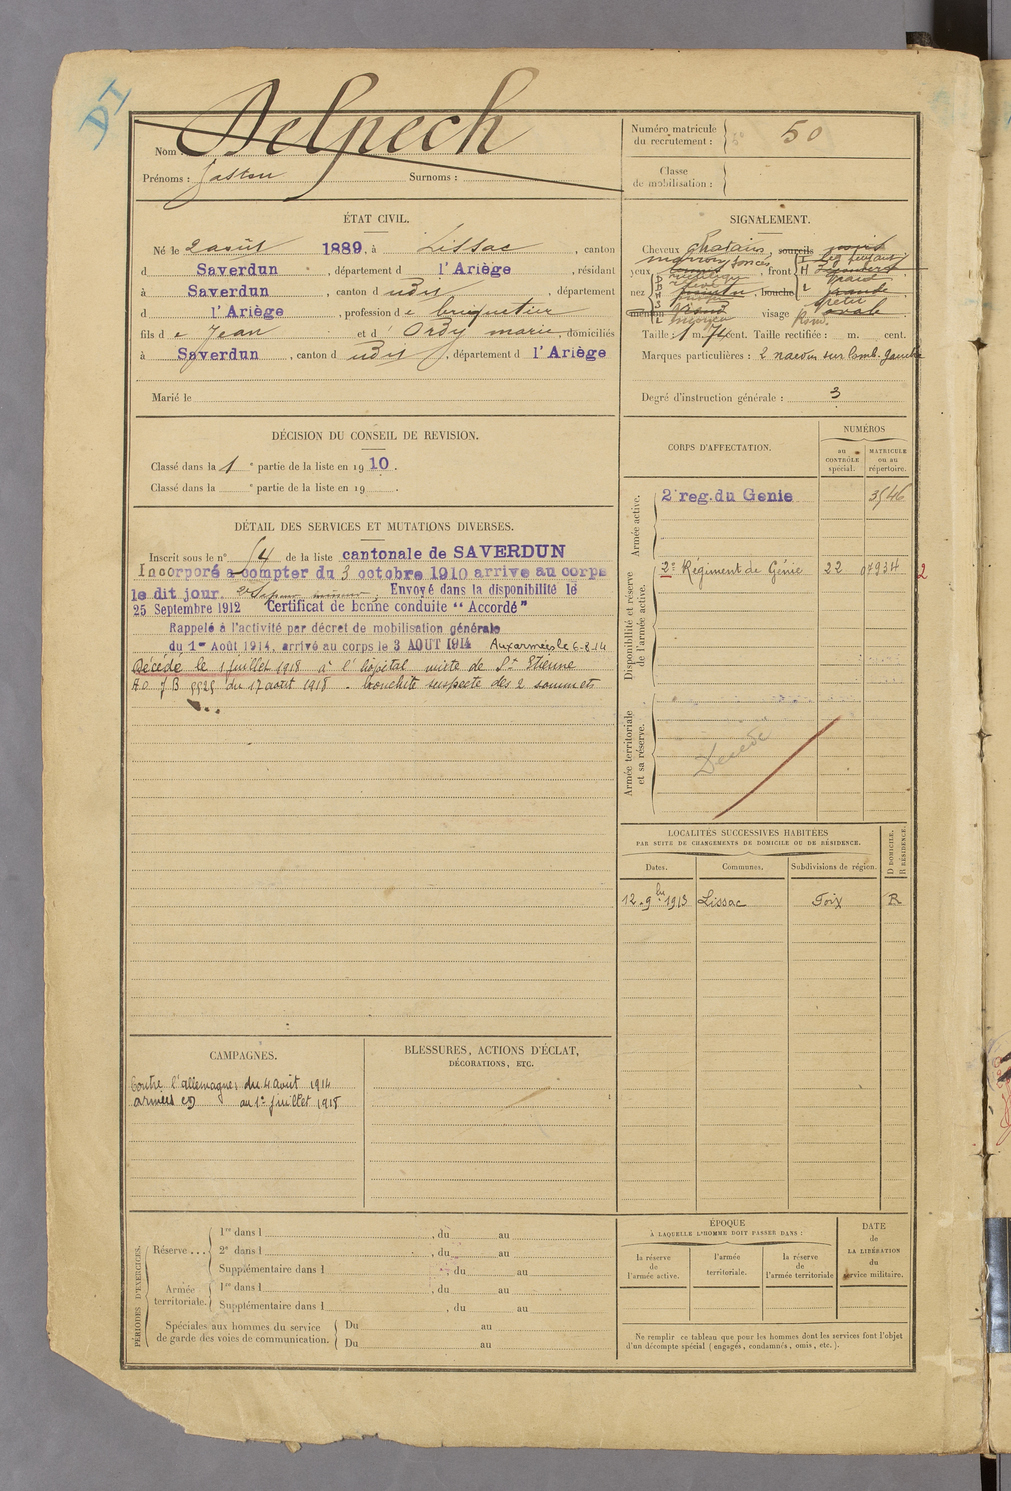 DI
Nom : Delpech
Prénoms : Gaston Surnoms :
Numéro matricule du recrutement : 50
Classe de mobilisation :
ÉTAT CIVIL.
Né le 2 août 1889, à Lissac, canton
d Saverdun, département d l'Ariège, résidant
à Saverdun, canton d udit, département
d l'Ariège, profession de briquetier
fils de Jean et d' Ordy marie, domiciliés
à Saverdun, canton d udit, département d l'Ariège
Marié le
SIGNALEMENT.
Cheveux chatains, sourcils noirs
marron foncés
yeux, front
nez moyen, bouche grande
menton rond visage ovale
Taille : 1 m. 74 cent. Taille rectifiée : m. cent.
Marques particulières : 2 naevus sur lomb. gauche
Degré d'instruction générale : 3
DÉCISION DU CONSEIL DE REVISION.
Classé dans la 1e partie de la liste en 1910.
Classé dans la e partie de la liste en 19 .
CORPS D'AFFECTATION.
NUMÉROS
au CONTRÔLE spécial.
MATRICULE ou au répertoire.
Armée active.
2e reg. du Genie 3546
Disponibilité et réserve de l'armée active.
2e Régiment de Génie 22 07934 2
Armée territoriale et sa réserve.
Décédé
DÉTAIL DES SERVICES ET MUTATIONS DIVERSES.
Inscrit sous le n° 54 de la liste cantonale de SAVERDUN
Incorporé à compter du 3 octobre 1910 arrive au corps
le dit jour. 2e Sapeur mineur. Envoyé dans la disponibilité le
25 Septembre 1912 Certificat de bonne conduite "Accordé"
Rappelé à l'activité par décret de mobilisation générale
du 1er Août 1914, arrivé au corps le 3 AOUT 1914 Aux armées le 6-8-14
Décédé le 1 juillet 1918 à l'hôpital mixte de St Etienne
du 17 août 1918 - bronchite suspecte des 2 sommets
LOCALITÉS SUCCESSIVES HABITÉES
PAR SUITE DE CHANGEMENTS DE DOMICILE OU DE RÉSIDENCE.
D DOMICILE. R RÉSIDENCE.
Dates. Communes. Subdivisions de région.
12. 9bre 1913 Lissac Foix R
CAMPAGNES.
Contre l'allemagne du 4 août 1914
armées au 1er juillet 1918
BLESSURES, ACTIONS D'ÉCLAT,
DÉCORATIONS, ETC.
PÉRIODES D'EXERCICES.
Réserve ...
1re dans l , du au
2e dans l , du au
Supplémentaire dans l , du au
Armée territoriale.
1re dans l , du au
Supplémentaire dans l , du au
Spéciales aux hommes du service de garde des voies de communication.
Du au
Du au
ÉPOQUE
À LAQUELLE L'HOMME DOIT PASSER DANS :
la réserve de l'armée active.
l'armée territoriale.
la réserve de l'armée territoriale
DATE de LA LIBÉRATION du service militaire.
Ne remplir ce tableau que pour les hommes dont les services font l'objet
d'un décompte spécial (engagés, condamnés, omis, etc.).